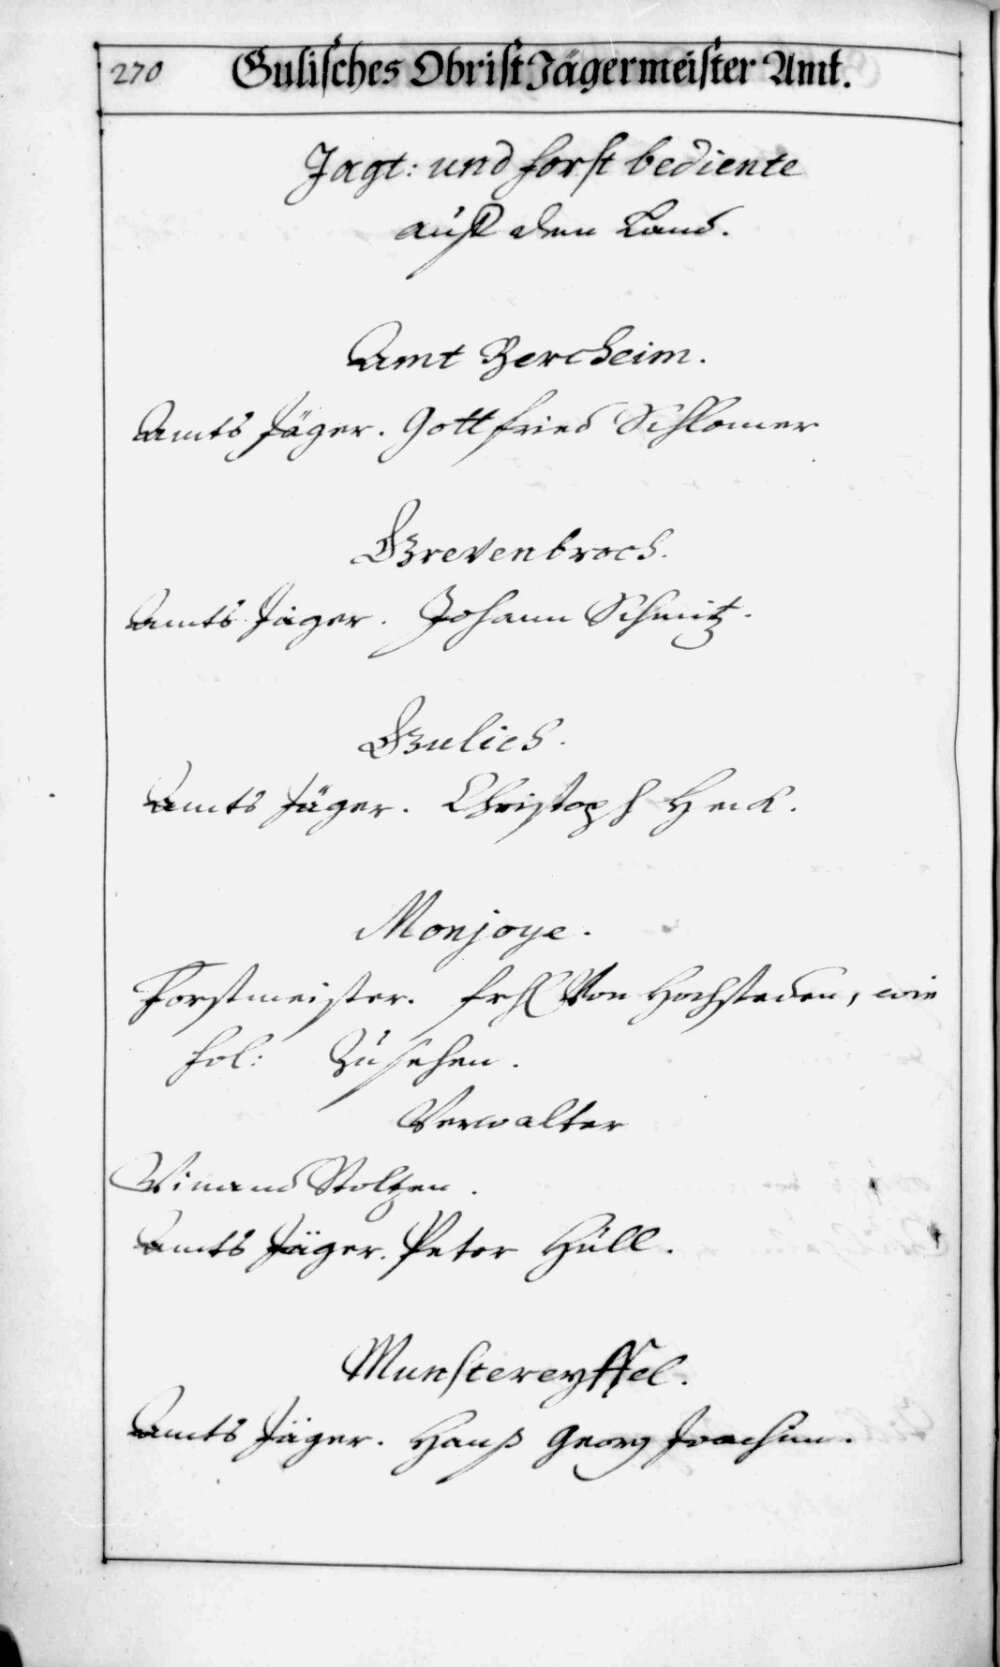 270 Gulisches Obrist Jägermeister Amt.
Jagt: und forst bediente
auff dem Land.
Amt Bercheim.
Amts Jäger. Gottfried Schlomer
Grevenbroch.
Amts Jäger. Johann Schmitz.
Gulich.
Amts Jäger. Christoph Heck.
Monjoye.
Forstmeister. frh Von Hochsteden, wie
fol: Zu sehen.
Verwalter
Winand Stoltzen.
Amts Jäger. Peter Hüll.
Munstereyffel.
Amts Jäger. Hanß Georg Joachim.